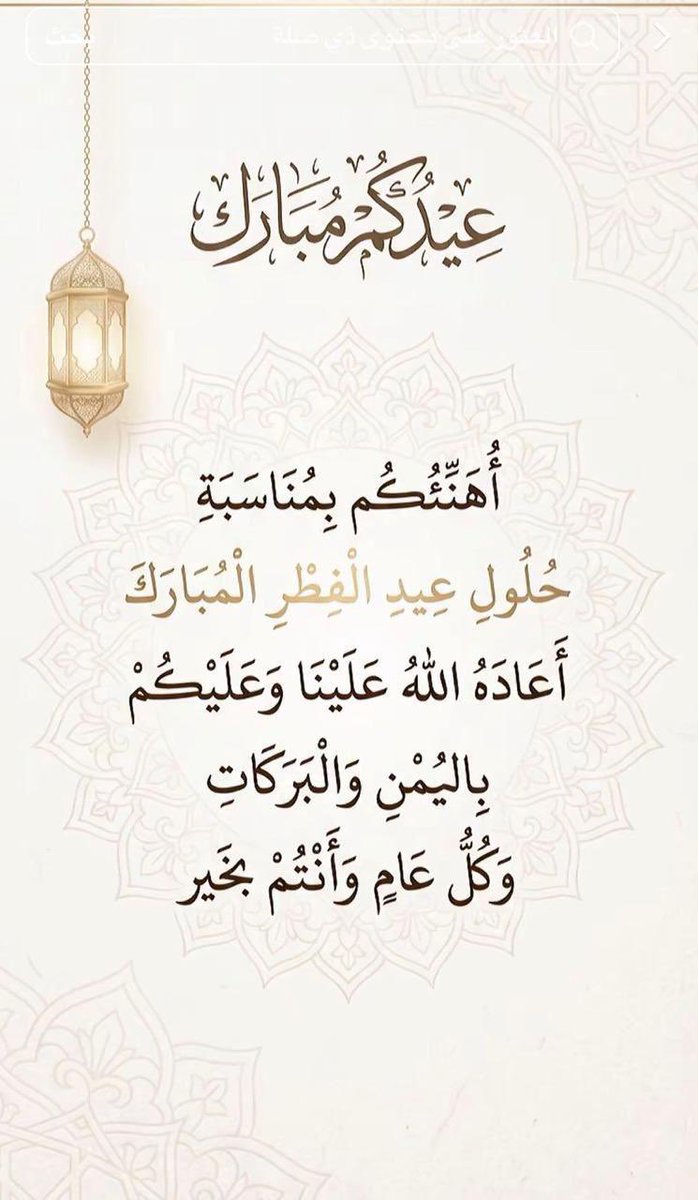 العثور على محتوى ذي صلة
بحث
عِيْدُكُمْ مُبَارَك
أُهَنِّئُكُم بِمُنَاسَبَةِ
حُلُولِ عِيدِ الْفِطْرِ الْمُبَارَكَ
أَعَادَهُ اللهُ عَلَيْنَا وَعَلَيْكُمْ
بِاليُمْنِ وَالْبَرَكَاتِ
وَكُلُّ عَامٍ وَأَنْتُمْ بِخَير